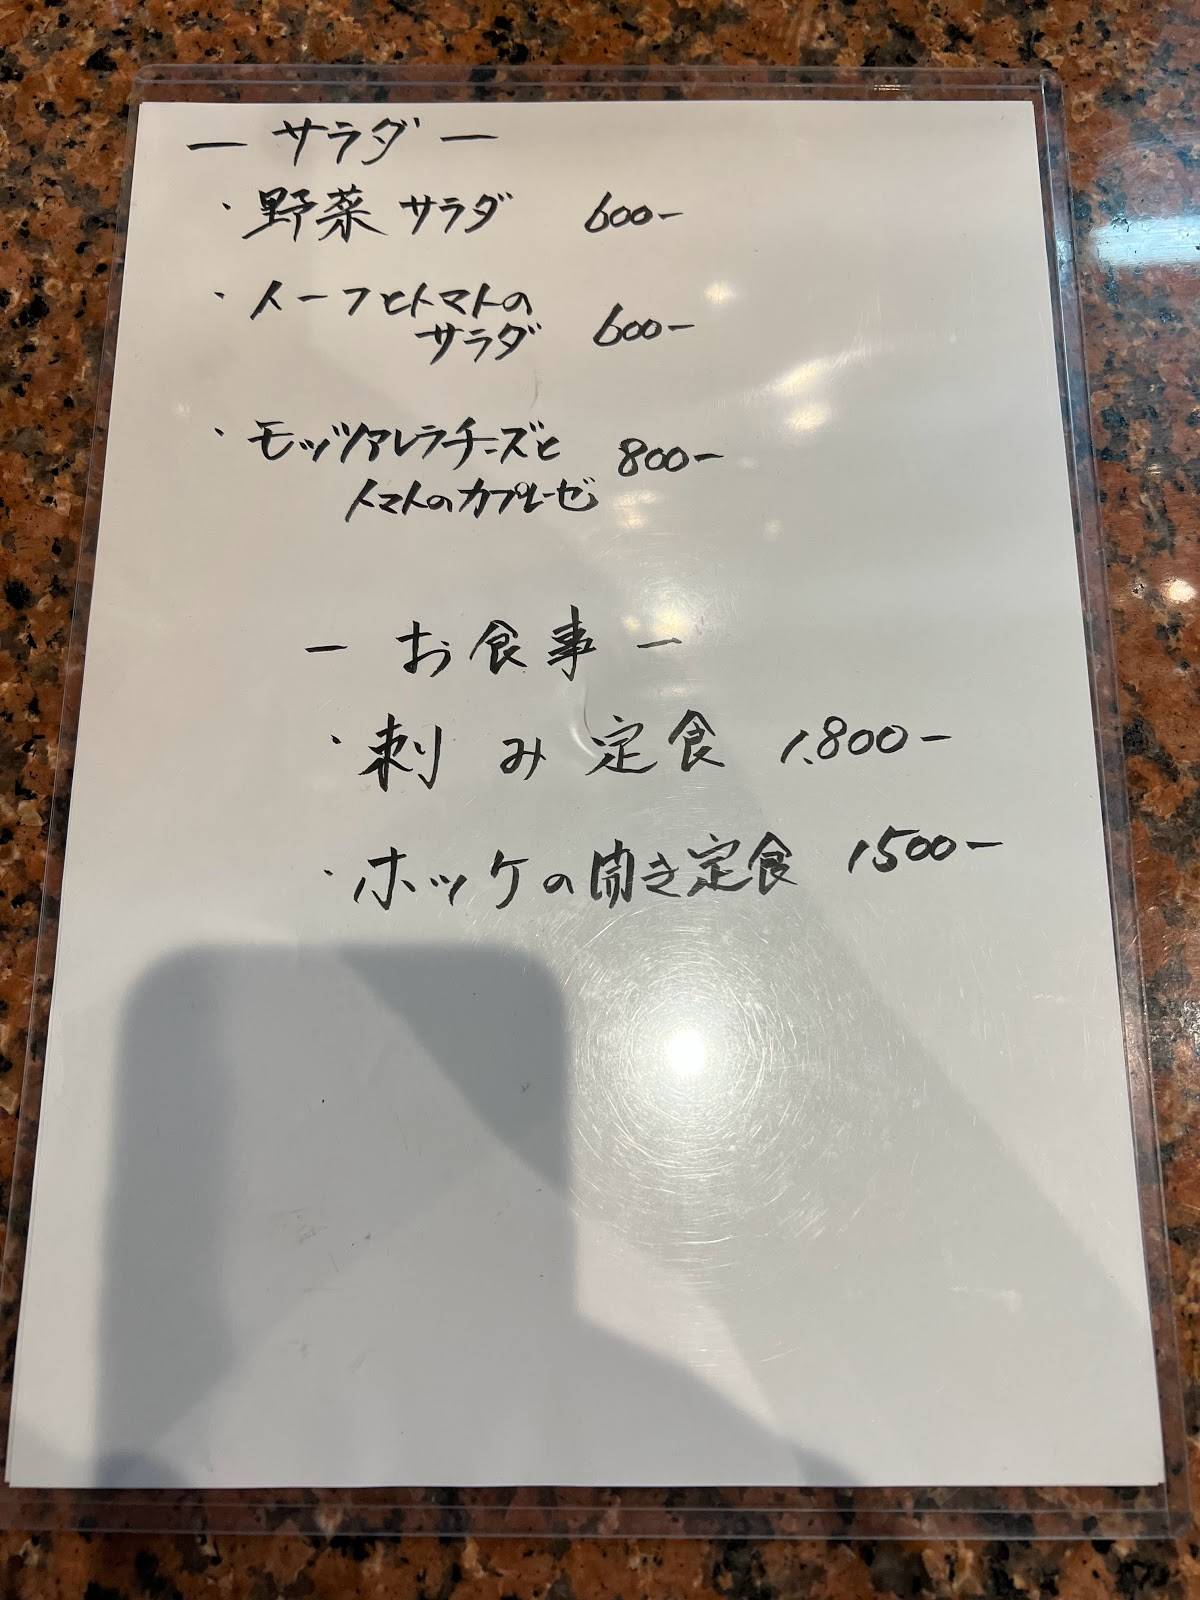 ー サラダ ー
・野菜サラダ 600-
・トーフとトマトの
サラダ 600-
・モッツァレラチーズと 800-
トマトのカプレーゼ
ー お食事 ー
・刺み定食 1,800-
・ホッケの開き定食 1500-